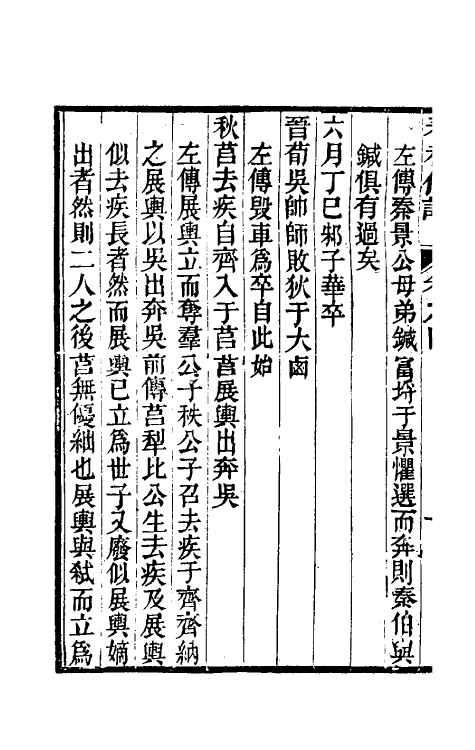 左傳秦景公母弟鍼富埓于景懼選而奔則秦伯與
鍼俱有過矣
六月丁巳邾子華卒
晉荀吳帥師敗狄于大鹵
左傳毀車為卒自此始
秋莒去疾自齊入于莒莒展輿出奔吳
左傳展輿立而奪羣公子秩公子召去疾于齊齊納
之展輿以吳出奔吳前傳莒犁比公生去疾及展輿
似去疾長者然而展輿已立為世子又廢似展輿嫡
出者然則二人之後莒無優絀也展輿與弒而立為